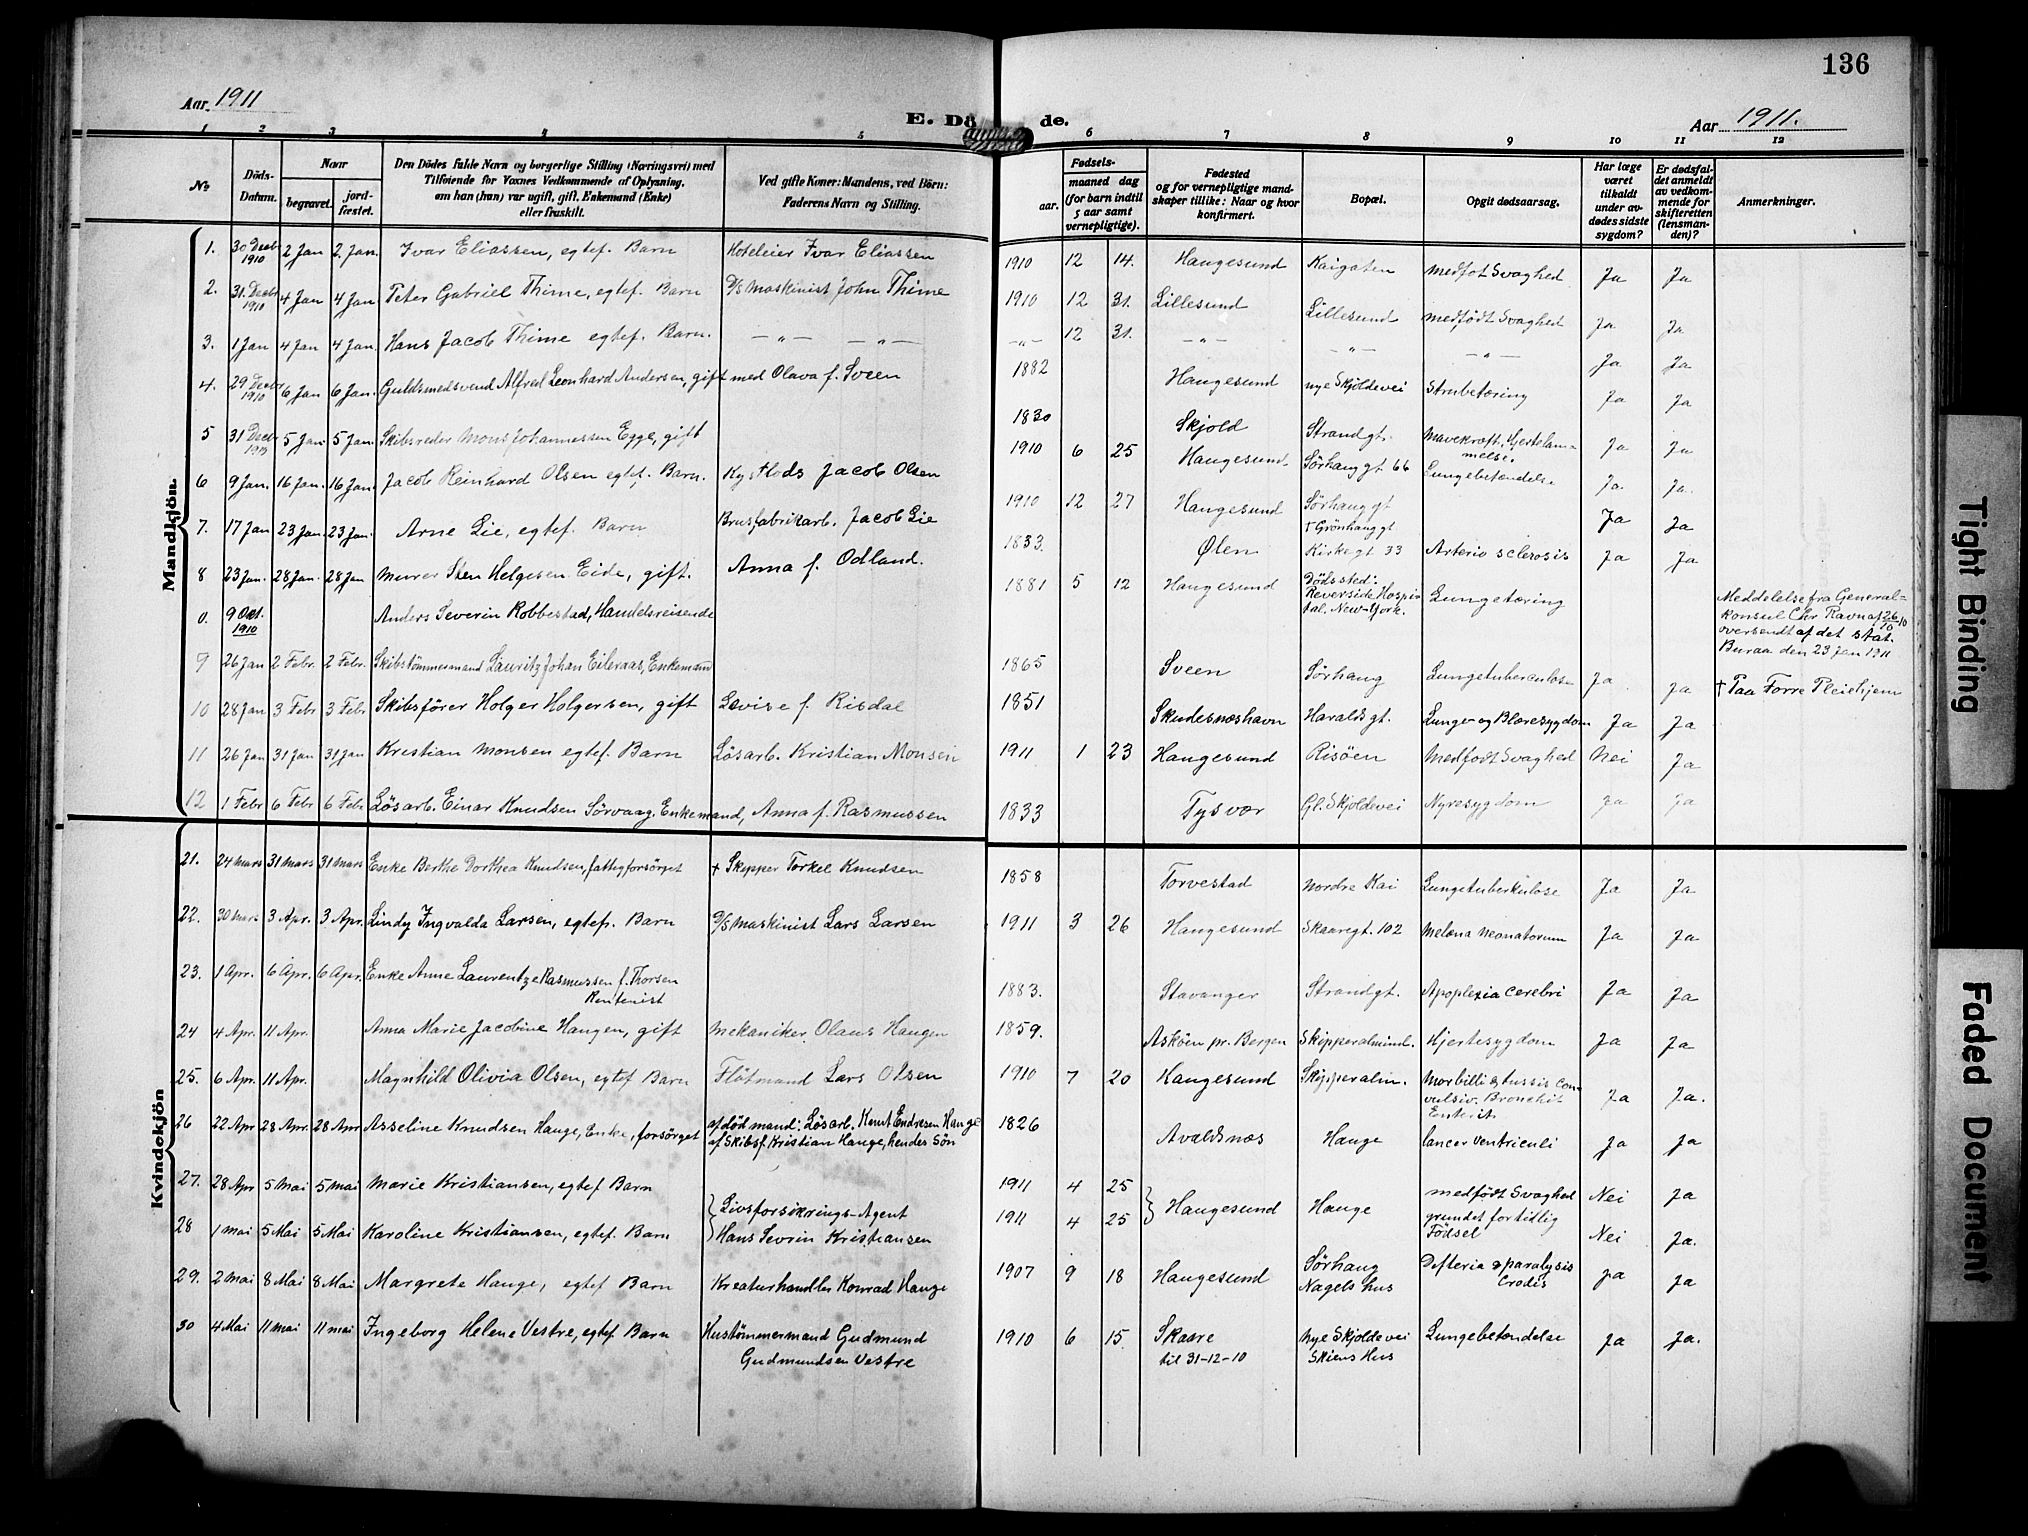 136
Aar 1911
E. Dö de.
Aar 1911.
1 2 3 4 5 6 7 8 9 10 11 12
No
Döds-Datum.
Naar
begravet.
jord-fæstet.
Den Dödes fulde Navn og borgerlige Stilling (Næringsvei) med
Tilføiende for Voxnes Vedkommende af Oplysning,
om han (hun) var ugift, gift, Enkemand (Enke)
eller fraskilt.
Ved gifte Koner: Mandens, ved Börn:
Faderens Navn og Stilling.
Fødsels-
aar.
maaned dag
(for barn indtil
5 aar samt
vernepligtige).
Fødested
og for vernepligtige mand-
skaper tillike: Naar og hvor
konfirmert.
Bopæl.
Opgit dødsaarsag.
Har læge
været
tilkaldt
under av-
dødes sidste
sygdom?
Er dødsfal-
det anmeldt
av vedkom-
mende for
skifteretten
(lensman-
den)?
Anmerkninger.
Mandkjön.
1. 30 Decb 1910 2 Jan 2. Jan. Ivar Eliassen, egtef. Barn Hoteleier Ivar Eliassen 1910 12 14. Haugesund Kaigaten medföt Svaghed Ja Ja
2. 31. Decb 1910 4 Jan 4 Jan Peter Gabriel Thime, egtef. Barn D/S maskinist John Thime 1910 12 31. Lillesund Lillesund medfödt Svaghed Ja Ja
3. 1 Jan 4 Jan 4 Jan. Hans Jacob Thime egtef. Barn. — „ — — „ — — „ — 12 31. — „ — — „ — — „ — Ja Ja
4. 29 Decb 1910 6 Jan 6 Jan. Guldsmedsvend Alfred Leonhard Andersen, gift med Olava f. Sveen 1882 Haugesund nye Skjoldevei Strubetæring Ja Ja
5 31 Decb 5 Jan. 5 Jan. Skibsreder Mons Johannessen Egge, gift 1830 Skjold Strandgt. Mavekræft, Hjertelam-
melse. Ja Ja
6 9 Jan. 16 Jan. 16 Jan. Jacob Reinhard Olsen egtef. Barn. Kystlods Jacob Olsen 1910 6 25 Haugesund. Sörhauggt 66 Lungebetændelse Ja. Ja.
7. 17 Jan 23 Jan. 23 Jan. Arne Lie, egtef. Barn Brusfabrikarb. Jacob Lie 1910 12 27 Haugesund Sörhauggt
Grönhauggt Ja Ja
8 23 Jan. 28 Jan. 28 Jan Murer Sten Helgesen Eide, gift. Anna f. Odland. 1833. Ølen Kirkegt 33 Arterio sclerosis Ja Ja
0. 9 Okt. 1910 Anders Severin Robbestad, Handelsreisende 1881 5 12 Haugesund Dödssted:
Reverside Hospi-
tal. New-York. Lungetæring
Meddelelse fra General=
konsul Chr Ravn af 26/10 10
oversendt af det stat.
Buraa den 23 Jan 1911
9 26 Jan 2 Febr. 2 Febr. Skibstömmermand Lauritz Johan Eileraas, Enkemand 1865 Sveen Sörhaug Lungetuberculose Ja Ja † Paa Førre Pleiehjem
10 28 Jan 3 Febr 3 Febr Skibsförer Holger Holgersen, gift Lovise f. Risdal 1851 Skudesneshavn Haraldsgt. Lunge- og Blæresygdom Ja Ja
11 26 Jan 31 Jan 31 Jan Krestian Monsen egtef. Barn Lösarb. Kristian Monsen 1911 1 23 Haugesund Risöen Medfødt Svaghed Nei Ja
12 1 Febr 6 Febr 6 Febr Lösarb. Einar Knudsen Sörvaag, Enkemand, Anna f. Rasmussen 1833 Tysvær Gl. Skjoldevei Nyresygdom Ja Ja
Kvindekjön
21. 24 mars 31 mars 31 mars Enke Berthe Dorthea Knudsen, fattigforsörget † Skipper Torkel Knudsen 1858 Torvestad Nordre Kai Lungetuberkulose Ja Ja
22. 30 mars 3 Apr. 3 Apr. Lindy Ingvalda Larsen, egtef. Barn D/S Maskinist Lars Larsen 1911 3 26 Haugesund Skaaregt. 102 Melæna neonatorum Ja Ja
23. 1 Apr. 6 Apr. 6 Apr. Enke Anne Laurentze Rasmussen f. Thorsen
Rentenist 1883. Stavanger Strandgt. Apoplexia Cerebri Ja Ja
24 4 Apr. 11 Apr. Anna Marie Jacobine Haugen, gift Mekaniker Olaus Haugen 1859. Asköen pr. Bergen Skipperalmind. Hjertesygdom Ja Ja
25. 6 Apr. 11 Apr. Magnhild Olivia Olsen, egtef Barn Flötmand Lars Olsen 1910 7 20 Haugesund Skipperalm. Morbilli & tussis con-
vulsiv. Bronchit
Enterit. Ja Ja.
26 22 Apr 28 Apr. 28 Apr Asseline Knudsen Hauge, Enke, forsörget af död mand: Lösarb. Knut Endresen Hauge
af Skibsf. Kristian Hauge, hendes Sön 1826 Avaldsnæs Hauge Cancer Ventriculi Ja Ja
27. 28 Apr 5 Mai 5 Mai Marie Kristiansen, egtef Barn 1911 4 25 medfödt Svaghed Nei Ja
Livsforsikrings-Agent Haugesund Hauge
28 1 Mai 5 Mai 5 Mai Karoline Kristiansen, egtef. Barn Hans Sevrin Kristiansen 1911 4 25 grundet for tidlig
Födsel Nei Ja.
29. 2 Mai 8 Mai 8 Mai Margrete Hauge, egtef Barn Kreaturhandler Konrad Hauge 1907 9 18 Haugesund Sörhaug
Nagels hus Difteria & paralysis
Crodis Ja Ja
30 4 Mai 11 mai 11 mai Ingeborg Helene Vestre, egtef. Barn Hustömmermand Gudmund
Gudmundsen Vestre 1910 6 15 Skaare
til 31-12-10 Nye Skjoldevei
Skiens Hus Lungebetændelse Ja Ja.
Tight Binding
Faded Document